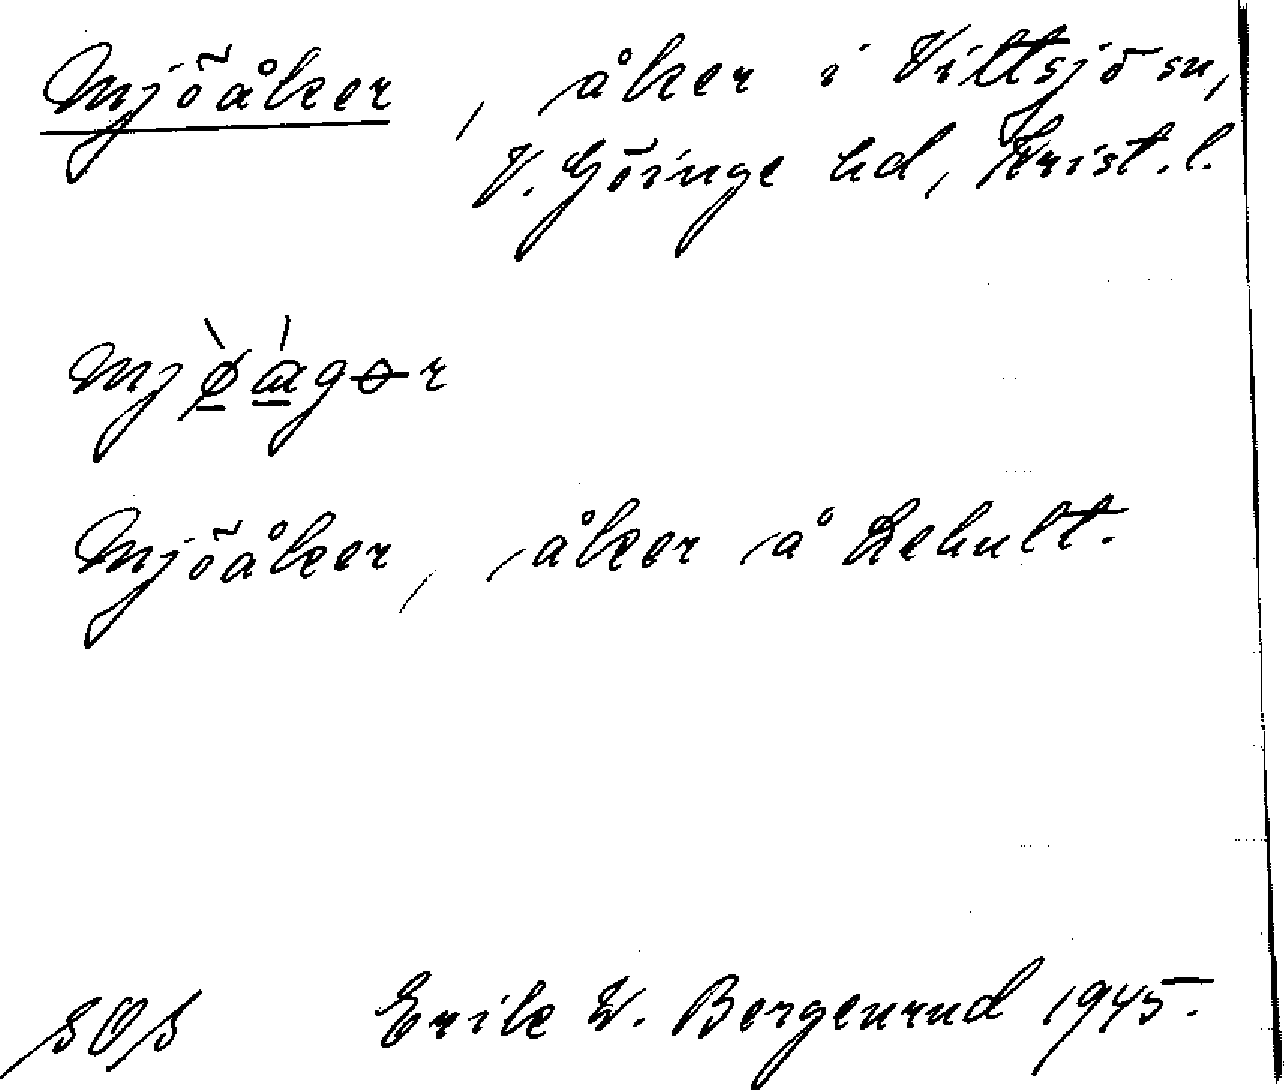 Mjöåker, åker i Vittsjö sn,
V. Göinge hd, Krist. l.
Mjøagər
Mjöåker, åker å Lehult.
SOS Erik W. Bergenrud 1945.